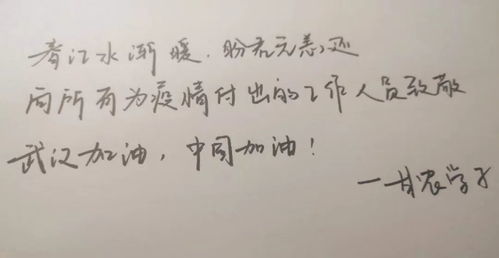 春江水渐暖,盼君无恙还
向所有为疫情付出的工作人员致敬
武汉加油,中国加油!
——甘农学子